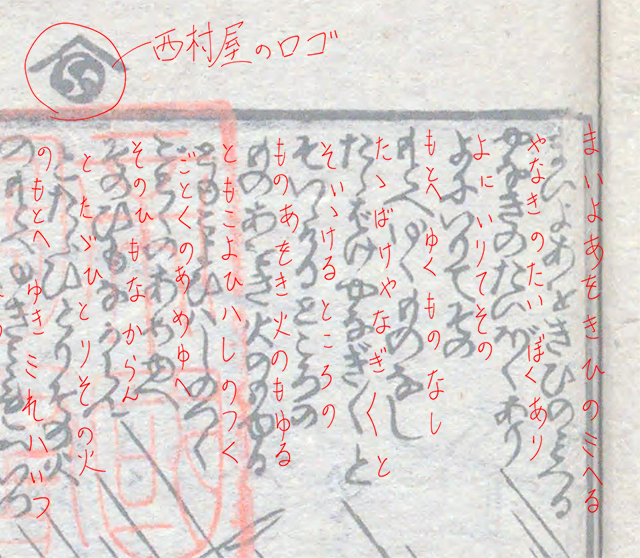 西村屋のロゴ
まいよあをきひのミへる
やなきのたいぼくあり
よにいりてその
もとへゆくものなし
たゝばけやなぎ〱と
そいゝけるところの
ものあをき火のもゆる
ともこよひハしのつく
ごとくのあめゆへ
そのひもなからん
とたゞひとりその火
のもとへゆきミれハいつ